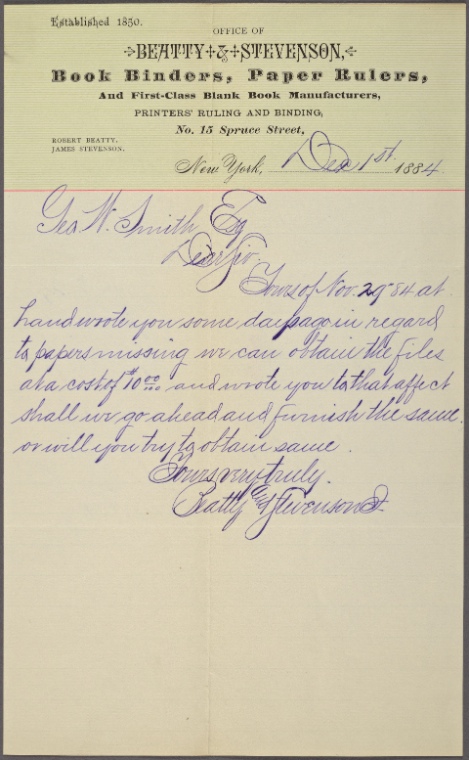 Established 1850.
OFFICE OF
BEATTY & STEVENSON,
Book Binders, Paper Rulers,
And First-Class Blank Book Manufacturers,
PRINTERS' RULING AND BINDING,
No. 15 Spruce Street,
ROBERT BEATTY.
JAMES STEVENSON.
New York, Dec 1st. 1884
Geo W. Smith Esq
Dear Sir.
Yours of Nov. 29" 84 at
hand wrote you some days ago in regard
to papers missing we can obtain the files
at a cost of $10 00/00 and wrote you to that affect
shall we go ahead and furnish the same.
or will you try to obtain same.
Yours very truly.
Beatty and Stevenson